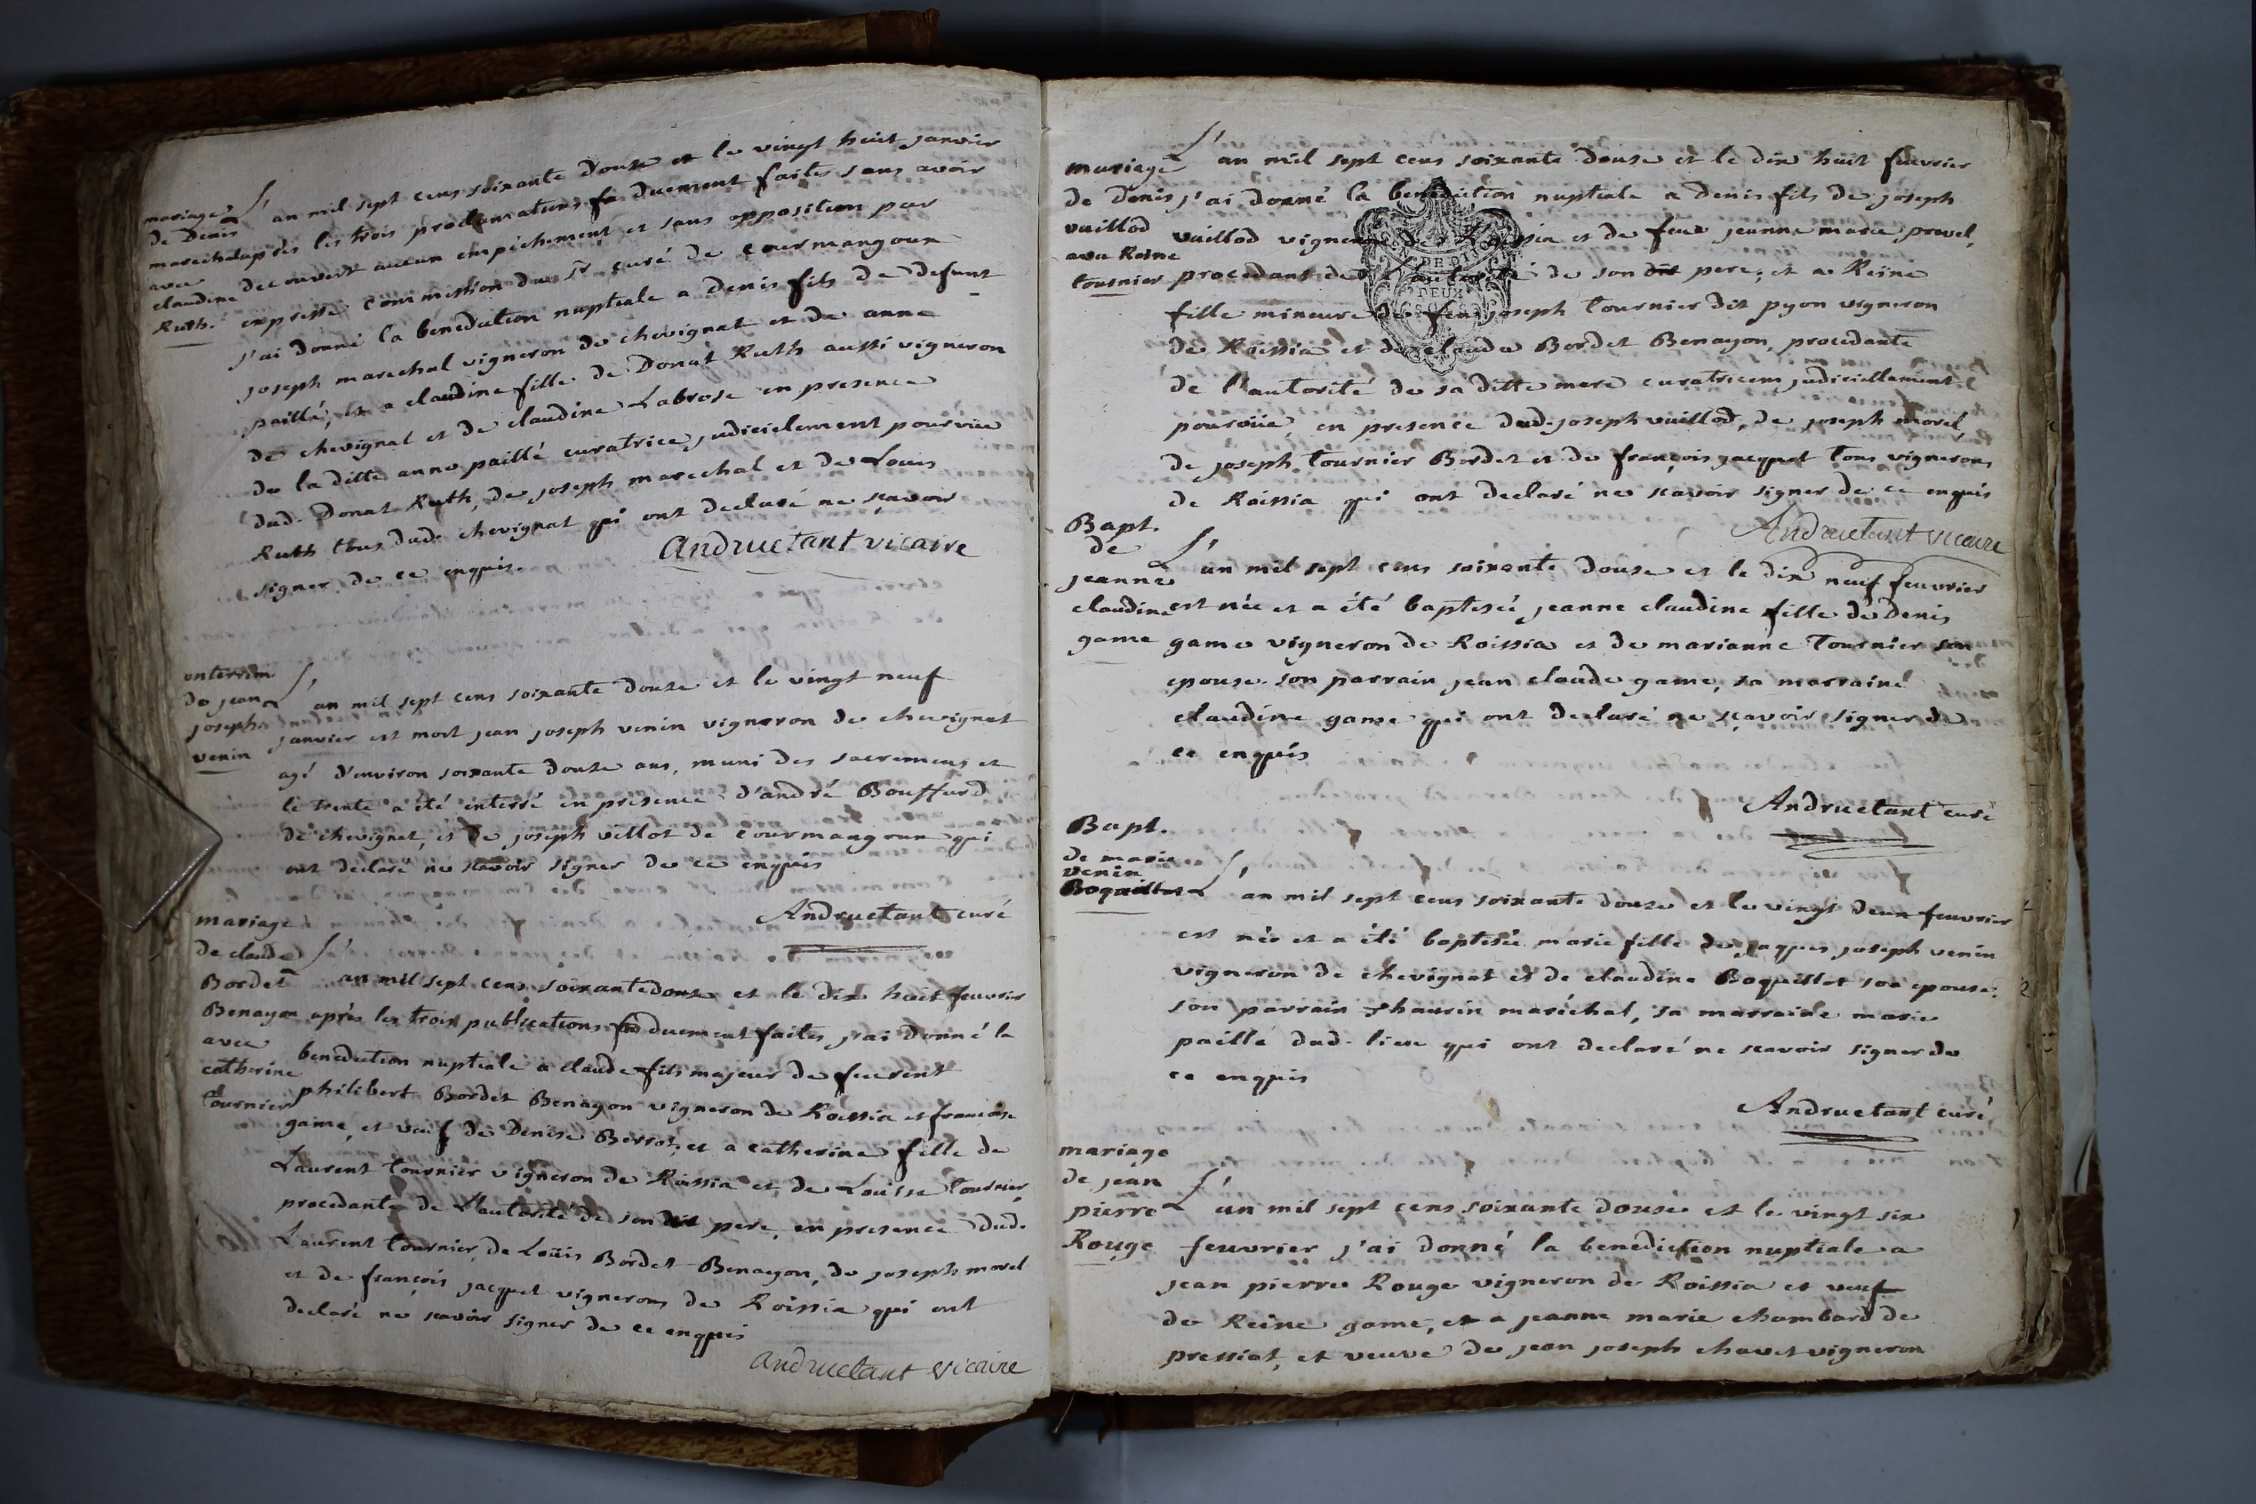 mariage
de Denis
marechal
avec
claudine
Ruth.
L'an mil sept cens soixante douze et le vingt huit janvier
après les trois proclamations duement faites sans avoir
decouvert aucun empéchement et sans opposition par
expresse commission du Sr curé de courmangoux
j'ai donné la benediction nuptiale a denis fils de defunt
joseph marechal vigneron de chevignat et de anne
paillé, et a claudine fille de Donat Ruth aussi vigneron
de chevignat et de claudine Labrose en presence
de la ditte anne paillé curatrice judicielement pourvüe
dud. Donat Ruth, de joseph marechal et de Louis
Ruth tous dud. chevignat qui ont declaré ne scavoir
signer de ce enquis.
Andructant vicaire
enterrem
de jean
joseph
venin
L'an mil sept cens soixante douze et le vingt neuf
janvier est mort jean joseph venin vigneron de chevignat
agé d'environ soixante douze ans, muni des sacremens et
le trente a été enterré en presence d'andré Bouffard
de chevignat, et de joseph vellot de courmangoux qui
ont declaré ne scavoir signer de ce enquis
Andructant curé
mariage
de claude
Bordet
Benayon
avec
catherine
Tournier
L'an mil sept cens soixante douze et le dix huit feuvrier
après les trois publications duement faites, j'ai donné la
benediction nuptiale a claude fils majeur de feurent
philibert Bordet Benayon vigneron de Roissia et francoise
game, et veuf de Denise Berrot, et a catherine fille de
Laurent Tournier vigneron de Roissia et de Louise Tournier
procedante de L'autorité de son dit pere, en presence dud.
Laurent Tournier, de Loüis Bordet Benayon, de joseph morel
et de françois jacquet vignerons de Roissia qui ont
declaré ne scavoir signer de ce enquis
Andructant vicaire
mariage
de Denis
vuillod
avec Reine
tournier
L'an mil sept cens soixante douze et le dix huit feuvrier
j'ai donné la benediction nuptiale a denis fils de joseph
vuillod vigneron de Roissia et de feue jeanne marie provel,
procedant de L'autorité de son dit pere, et a Reine
fille mineure de feu joseph Tournier dit pyon vigneron
de Roissia et de claude Bordet Benayon, procedante
de l'autorité de sa ditte mere curatrice judiciellement
pourvüe, en presence dud. joseph vuillod, de joseph morel
de joseph Tournier Bordet et de françois jacquet tous vignerons
de Roissia qui ont declaré ne scavoir signer de ce enquis
Andructant vicaire
Bapt.
de
jeanne
claudine
game
L'an mil sept cens soixante douze et le dix neuf feuvrier
est née et a été baptisée jeanne claudine fille de Denis
game vigneron de Roissia et de marianne Tournier son
epouse. son parrain jean claude game, sa marraine
claudine game qui ont declaré ne scavoir signer de
ce enquis
Andructant curé
Bapt.
de marie
venin
Boquillot
L'an mil sept cens soixante douze et le vingt deux feuvrier
est née et a été baptisée marie fille de jaques joseph venin
vigneron de chevignat et de claudine Boquillot son epouse.
son parrain thaurin maréchal, sa marraine marie
paillé dud. lieu qui ont declaré ne scavoir signer de
ce enquis
Andructant curé
mariage
de jean
pierre
Rouge
L'an mil sept cens soixante douze et le vingt six
feuvrier j'ai donné la benediction nuptiale a
jean pierre Rouge vigneron de Roissia et veuf
de Reine game, et a jeanne marie chambard de
pressiat, et veuve de jean joseph chavet vigneron